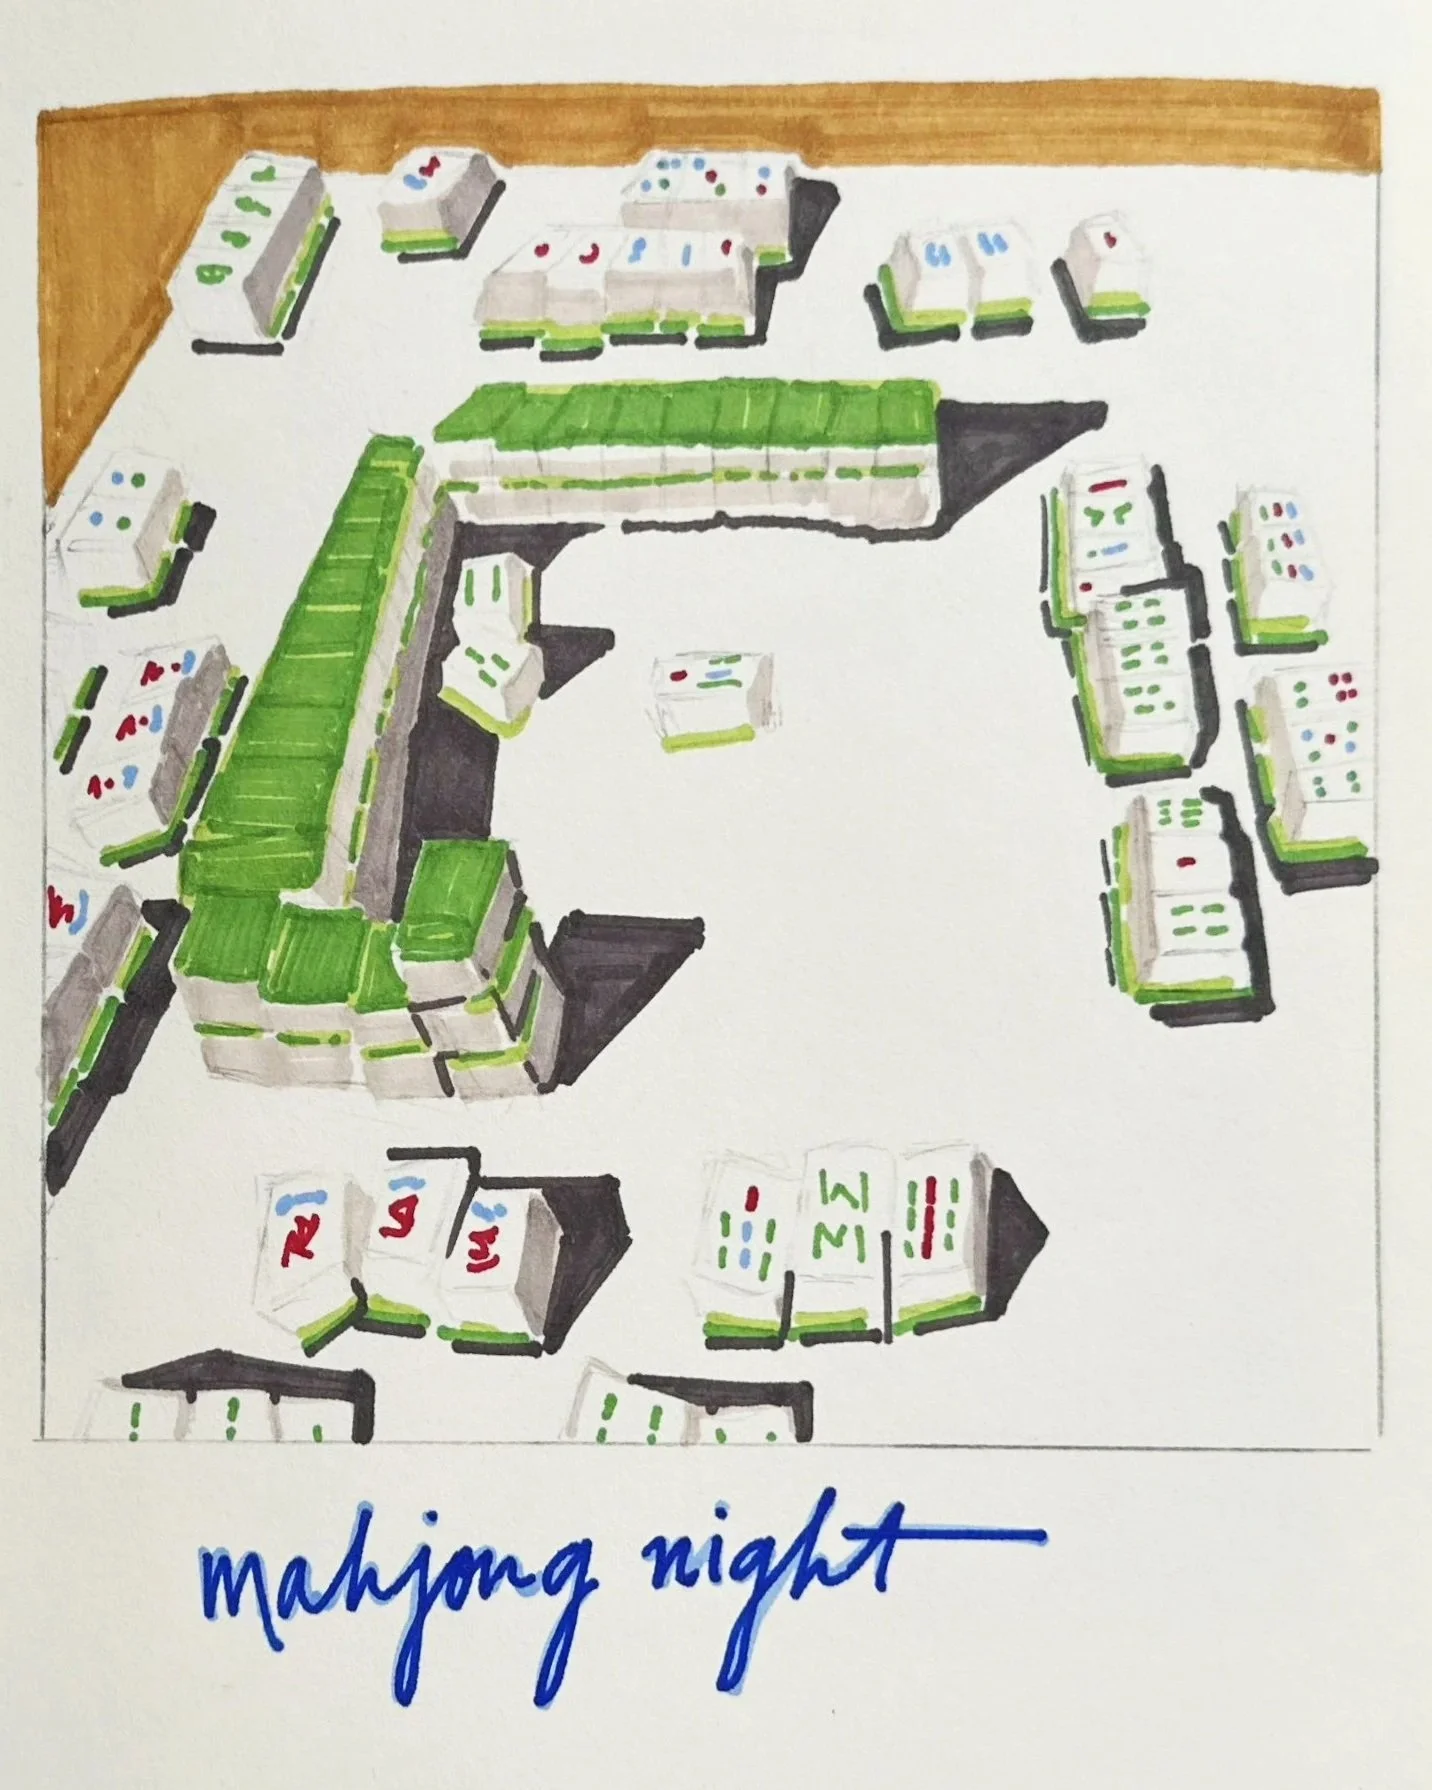 mahjong night